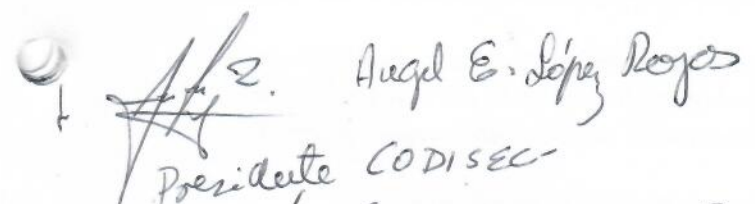 Angel E. López Rojas
Presidente CODISEC